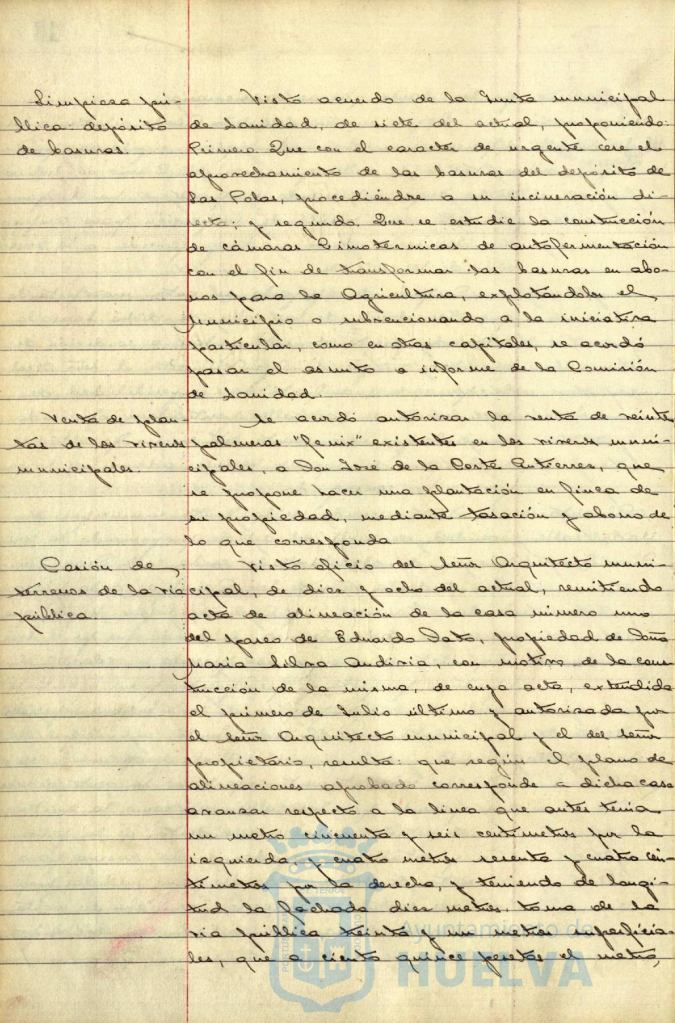 Limpieza pú-
blica: depósito
de basuras.
Visto acuerdo de la Junta municipal
de Sanidad, de siete del actual, proponiendo:
Primero. Que con el caracter de urgente cese el
aprovechamiento de las basuras del depósito de
Las Colas, procediéndose a su incineración di-
recta; y segundo. Que se estudie la construcción
de cámaras Zimotérmicas de autofermentación
con el fin de transformar las basuras en abo-
nos para la Agricultura, explotandolos el
Municipio o subvencionando a la iniciativa
particular, como en otras capitales, se acordó
pasar el asunto a informe de la Comisión
de Sanidad.
Venta de plan-
tas de los viveros
municipales.
Se acordó autorizar la venta de veinte
palmeras "fenix" existentes en los viveros muni-
cipales, a Don José de la Corte Gutierrez, que
se propone hacer una plantación en finca de
su propiedad, mediante tasación y abono de
lo que corresponda
Cesión de
terrenos de la via
pública.
Visto oficio del Señor Arquitecto muni-
cipal, de diez y ocho del actual, remitiendo
acta de alineación de la casa número uno
del paseo de Eduardo Dato, propiedad de Doña
Maria Silva, con motivo de la cons-
trucción de la misma, de cuya acta, extendida
el primero de Julio último y autorizada por
el Señor Arquitecto municipal y el del Señor
propietario, resulta: que según el plano de
alineaciones aprobado corresponde a dicha casa
avanzar respecto a la linea que antes tenia
un metro cincuenta y seis centimetros por la
izquierda, y cuatro metros sesenta y cuatro cen-
timetros por la derecha, y teniendo de longi-
tud la fachada diez metros, toma de la
via pública treinta y un metros superficia-
les, que a ciento quince pesetas el metro,
Ayuntamiento de
HUELVA